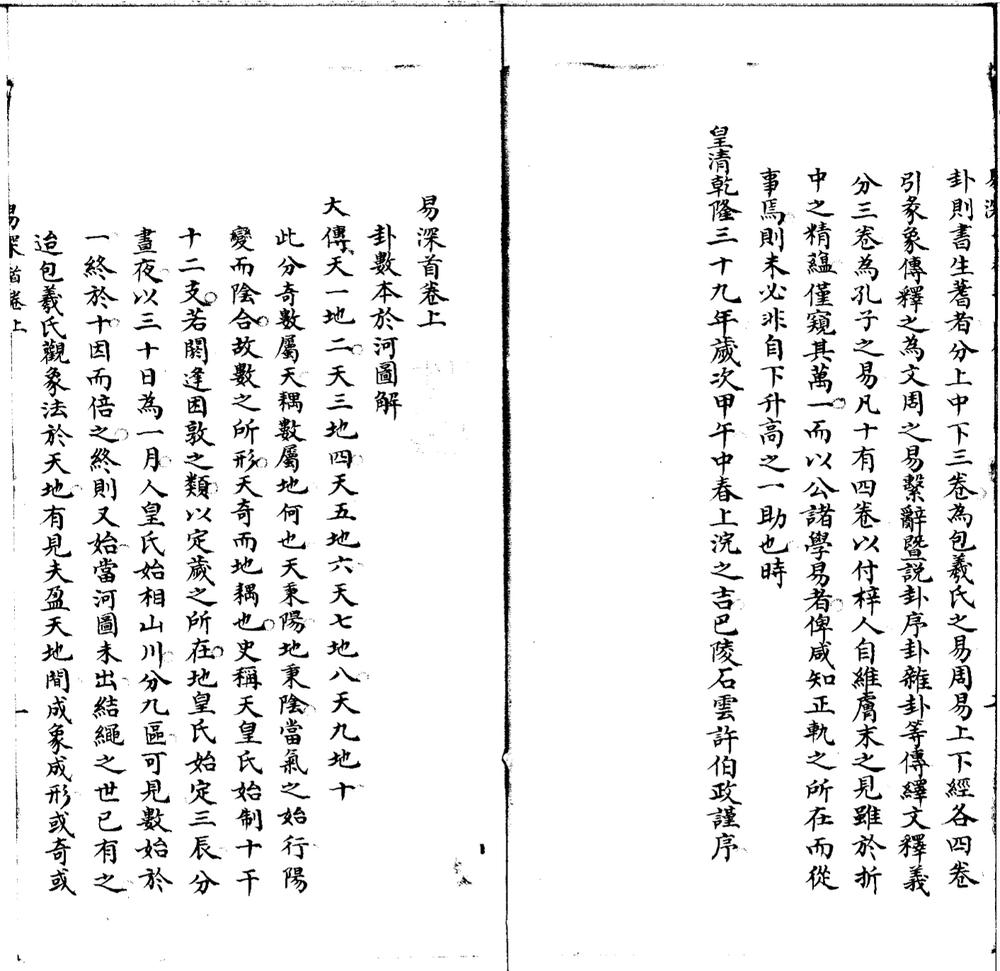 卦則書生蓍者分上中下三卷為包羲氏之易周易上下經各四卷
引彖象傳釋之為文周之易繫辭暨說卦序卦雜卦等傳繹文釋義
分三卷為孔子之易凡十有四卷以付梓人自維膚末之見雖於折
中之精蘊僅窺其萬一而以公諸學易者俾咸知正軌之所在而從
事焉則未必非自下升高之一助也時
皇清乾隆三十九年歲次甲午中春上浣之吉巴陵石雲許伯政謹序
易深首卷上
卦數本於河圖解
大傳天一地二天三地四天五地六天七地八天九地十
此分奇數屬天耦數屬地何也天秉陽地秉陰當氣之始行陽
變而陰合故數之所形天奇而地耦也史稱天皇氏始制十干
十二支若閼逢困敦之類以定歲之所在地皇氏始定三辰分
晝夜以三十日為一月人皇氏始相山川分九區可見數始於
一終於十因而倍之終則又始當河圖未出結繩之世已有之
迨包羲氏觀象法於天地有見夫盈天地間成象成形或奇或
易深首卷上
一